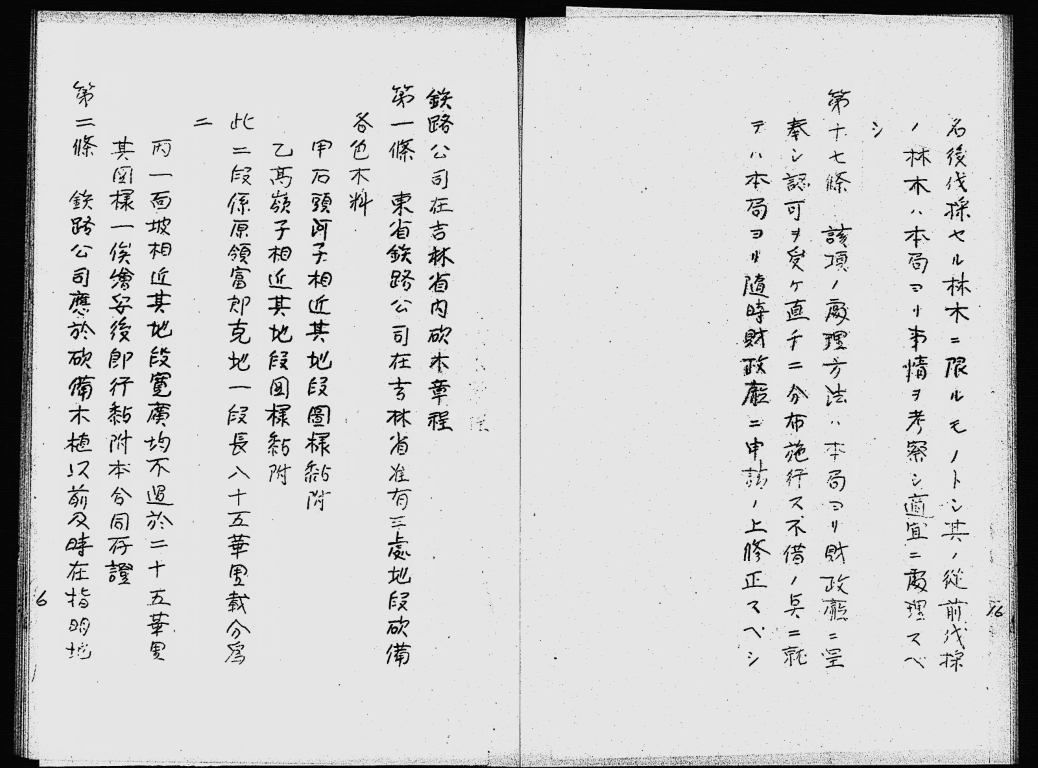 名後伐採セル林木ニ限ルモノトシ其ノ從前伐採
ノ林木ハ本局ヨリ事情ヲ考察シ適宜ニ處理スベ
シ
第十七條 該項ノ處理方法ハ本局ヨリ財政廳ニ呈
奉シ認可ヲ受ケ直チニ分布施行ス不備ノ点ニ就
テハ本局ヨリ隨時財政廳ニ申請ノ上修正スベシ
16
鉄路公司在吉林省内砍木章程
第一條 東省鉄路公司在吉林省准有三處地段砍備
各色木料
甲石頭河子相近其地段圖樣黏附
乙高嶺子相近其地段図樣黏附
此二段係原領富郎克地一段長八十五華里載分爲
二
丙一面坡相近其地段寛廣均不過於二十五華里
其図樣一俟繪妥後即行黏附本合同存證
第二條 鉄路公司應於砍備木植以前及時在指明地
6